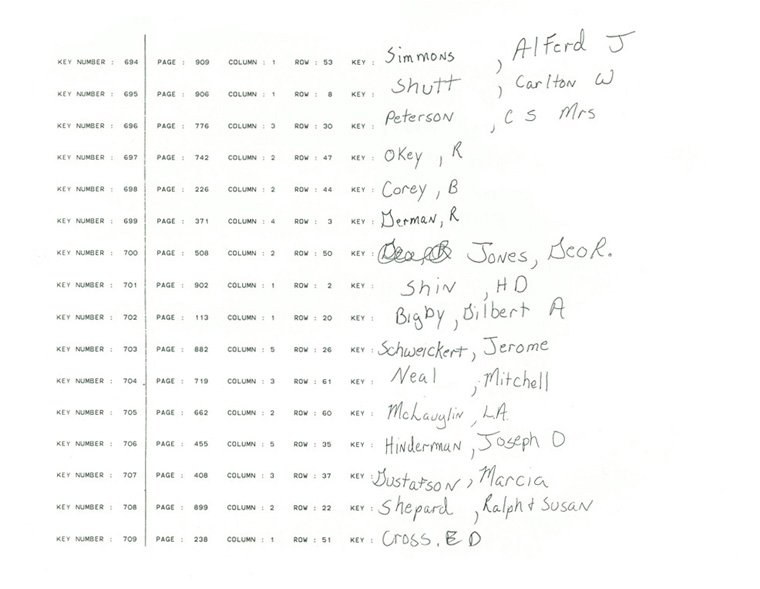 KEY NUMBER : 694 PAGE : 909 COLUMN : 1 ROW : 53 KEY : Simmons , Alferd J
KEY NUMBER : 695 PAGE : 906 COLUMN : 1 ROW : 8 KEY : Shutt , Carlton W
KEY NUMBER : 696 PAGE : 776 COLUMN : 3 ROW : 30 KEY : Peterson , C S Mrs
KEY NUMBER : 697 PAGE : 742 COLUMN : 2 ROW : 47 KEY : Okey , R
KEY NUMBER : 698 PAGE : 226 COLUMN : 2 ROW : 44 KEY : Corey , B
KEY NUMBER : 699 PAGE : 371 COLUMN : 4 ROW : 3 KEY : German, R
KEY NUMBER : 700 PAGE : 508 COLUMN : 2 ROW : 50 KEY : Jones, Geo R.
KEY NUMBER : 701 PAGE : 902 COLUMN : 1 ROW : 2 KEY : Shin , H D
KEY NUMBER : 702 PAGE : 113 COLUMN : 1 ROW : 20 KEY : Bigby , Gilbert A
KEY NUMBER : 703 PAGE : 882 COLUMN : 5 ROW : 26 KEY : Schweickert, Jerome
KEY NUMBER : 704 PAGE : 719 COLUMN : 3 ROW : 61 KEY : Neal , Mitchell
KEY NUMBER : 705 PAGE : 662 COLUMN : 2 ROW : 60 KEY : McLauglin, L.A.
KEY NUMBER : 706 PAGE : 455 COLUMN : 5 ROW : 35 KEY : Hinderman , Joseph O
KEY NUMBER : 707 PAGE : 408 COLUMN : 3 ROW : 37 KEY : Gustafson , Marcia
KEY NUMBER : 708 PAGE : 899 COLUMN : 2 ROW : 22 KEY : Shepard , Ralph & Susan
KEY NUMBER : 709 PAGE : 238 COLUMN : 1 ROW : 51 KEY : Cross, E D